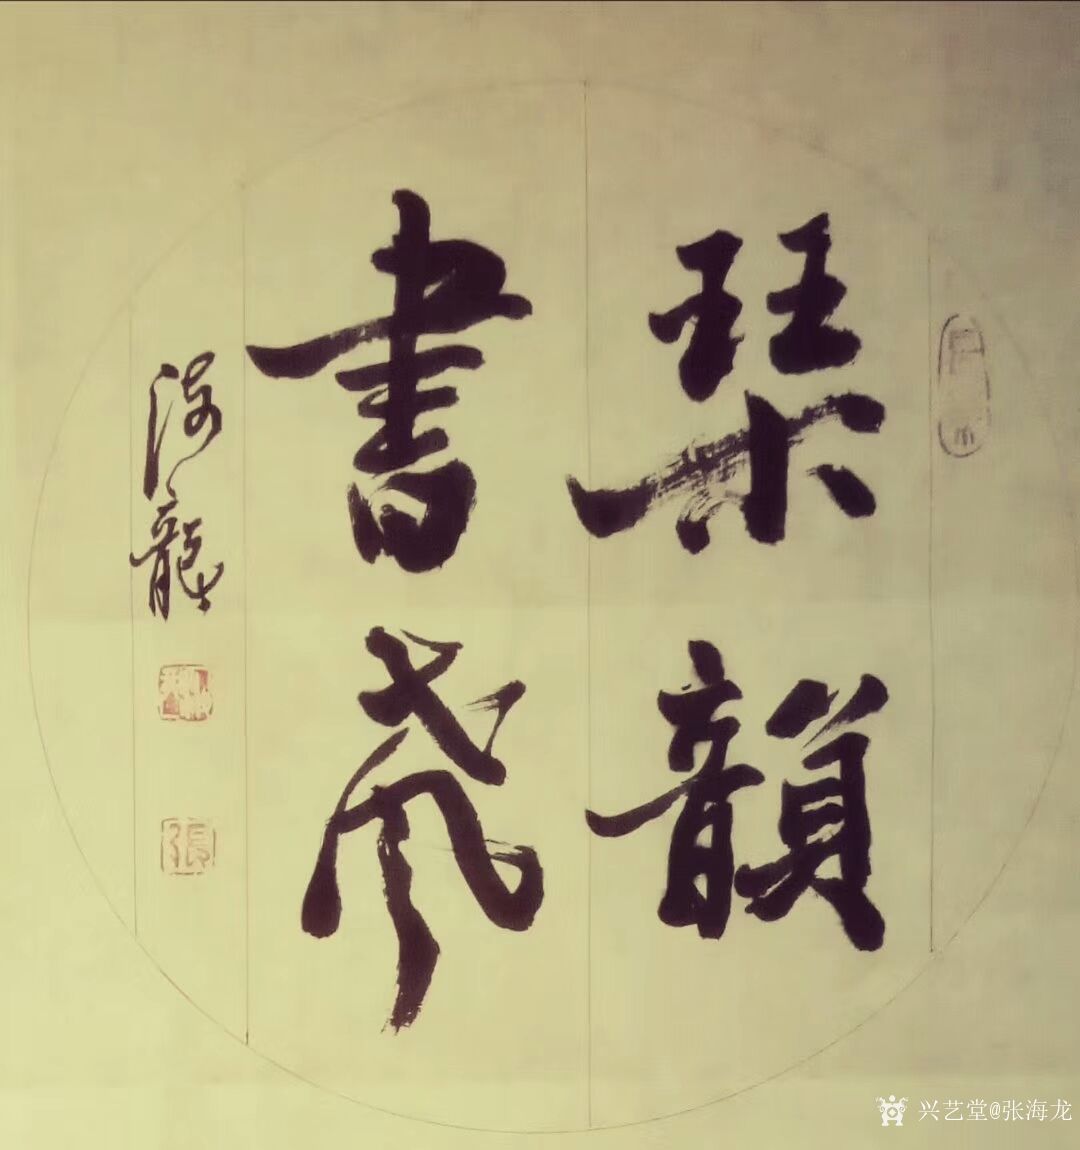 琹韻
書
海龍
張
兴艺堂@张海龙